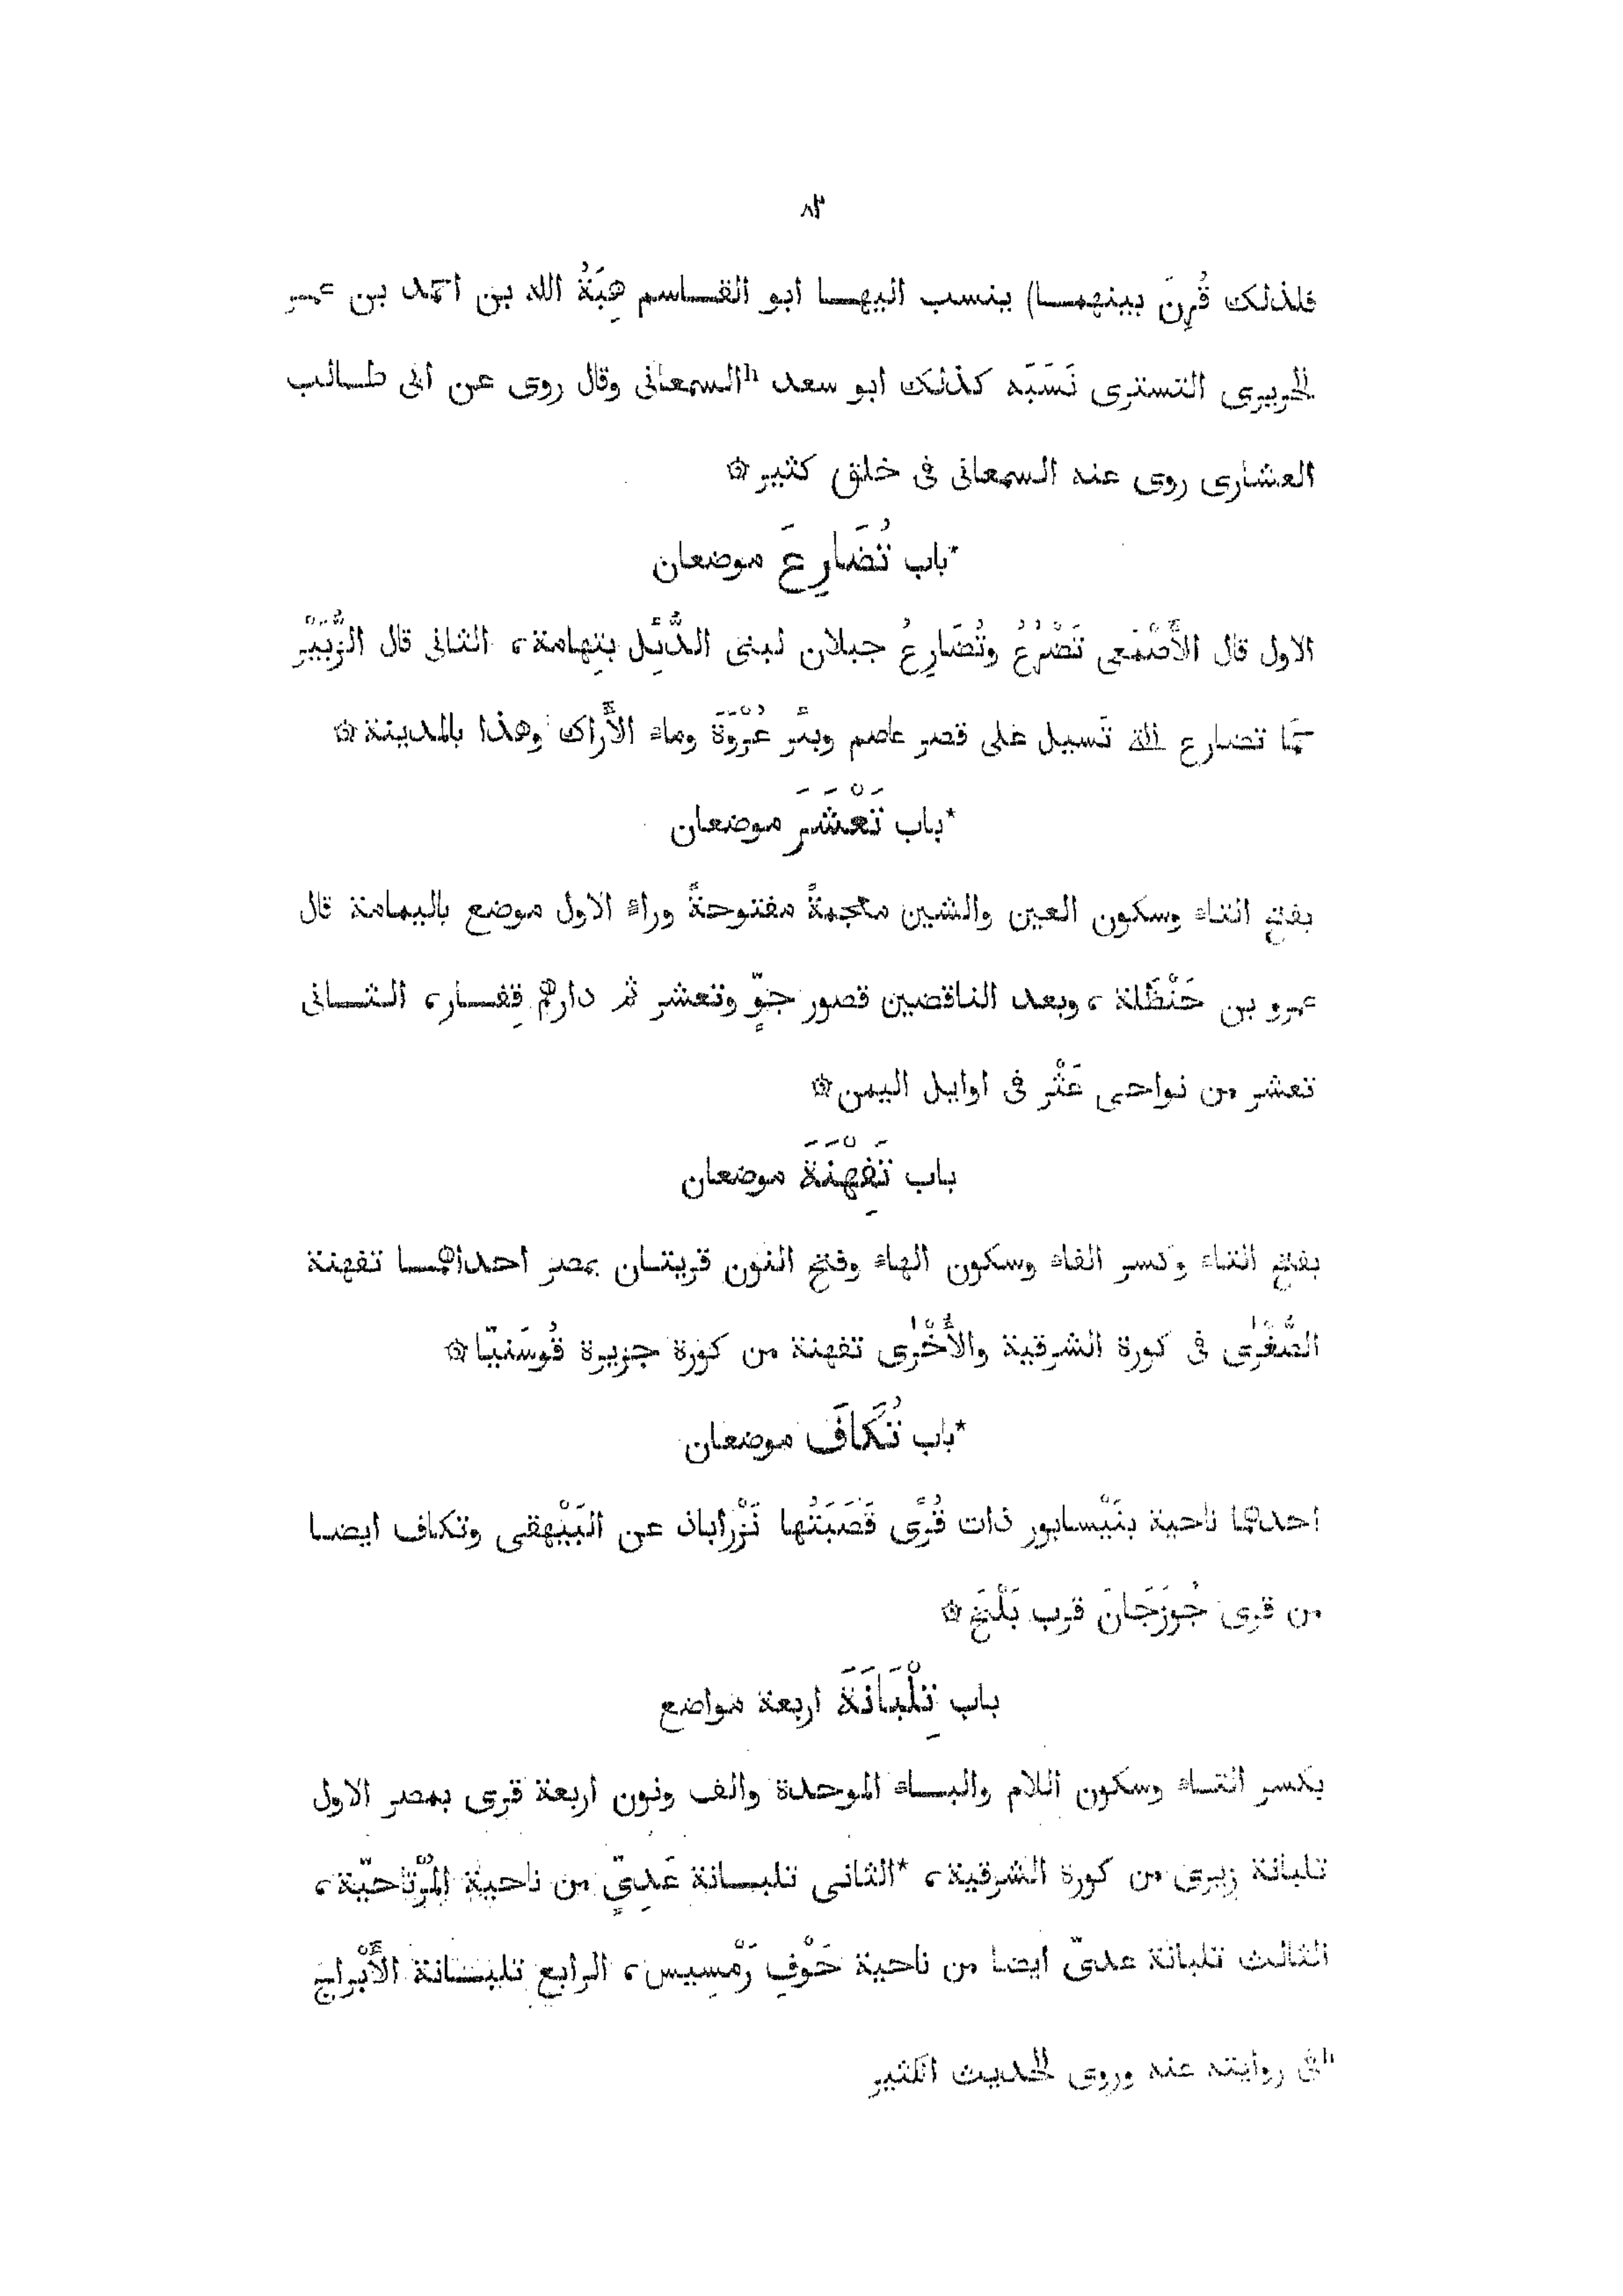 ٨٣
فلذلك قُرِنَ بينهما) ينسب اليها ابو القاسم هِبَةُ الله بن احمد بن عمر
الحريرى التسترى نَسَبَه كذلك ابو سعد hالسمعانى وقال روى عن ابى طالب
العشارى روى عنه السمعانى فى خلق كثير ۞
*باب تُضَارِعَ موضعان
الاول قال الأَصْمَعى تَضْرُعُ وتُضَارِعُ جبلان لبنى الدُّئِل بتِهامة، الثانى قال الزُّبَيْر
حَمَّا تضارع التى تَسيل على قصر عاصم وبئر عُرْوَةَ وماء الأَراك وهذا بالمدينة ۞
*باب تَعْشَرَ موضعان
بفتح التاء وسكون العين والشين معجمةً مفتوحةً وراء الاول موضع باليمامة قال
عمرو بن حَنْظَلة، وبعد الناقضين قصور جوٍّ وتعشر ثم دارهم قِفار، الثانى
تعشر من نواحى عَثْر فى اوايل اليمن ۞
باب تَفِهْنَةَ موضعان
بفتح التاء وكسر الفاء وسكون الهاء وفتح النون قريتان بمصر احداهما تفهنة
الصُّغْرٰى فى كورة الشرقية والأُخْرٰى تفهنة من كورة جزيرة قُوسَنيّا ۞
*باب تُكَافَ موضعان
احدهما ناحية بنَيْسابور ذات قُرًى قَصَبَتُها نَزْراباذ عن البَيْهقى وتكاف ايضا
من قرى جُوزَجَانَ قرب بَلْخ ۞
باب تِلْبَانَةَ اربعة مواضع
بكسر التاء وسكون اللام والباء الموحدة والف ونون اربعة قرى بمصر الاول
تلبانة زيرى من كورة الشرقية، *الثانى تلبانة عَدِىٍّ من ناحية المُرْتاحيّة،
الثالث تلبانة عدىّ ايضا من ناحية حَوْفِ رَمْسِيس، الرابع تلبانة الأَبْراج
h روايته عنه وروى الحديث الكثير